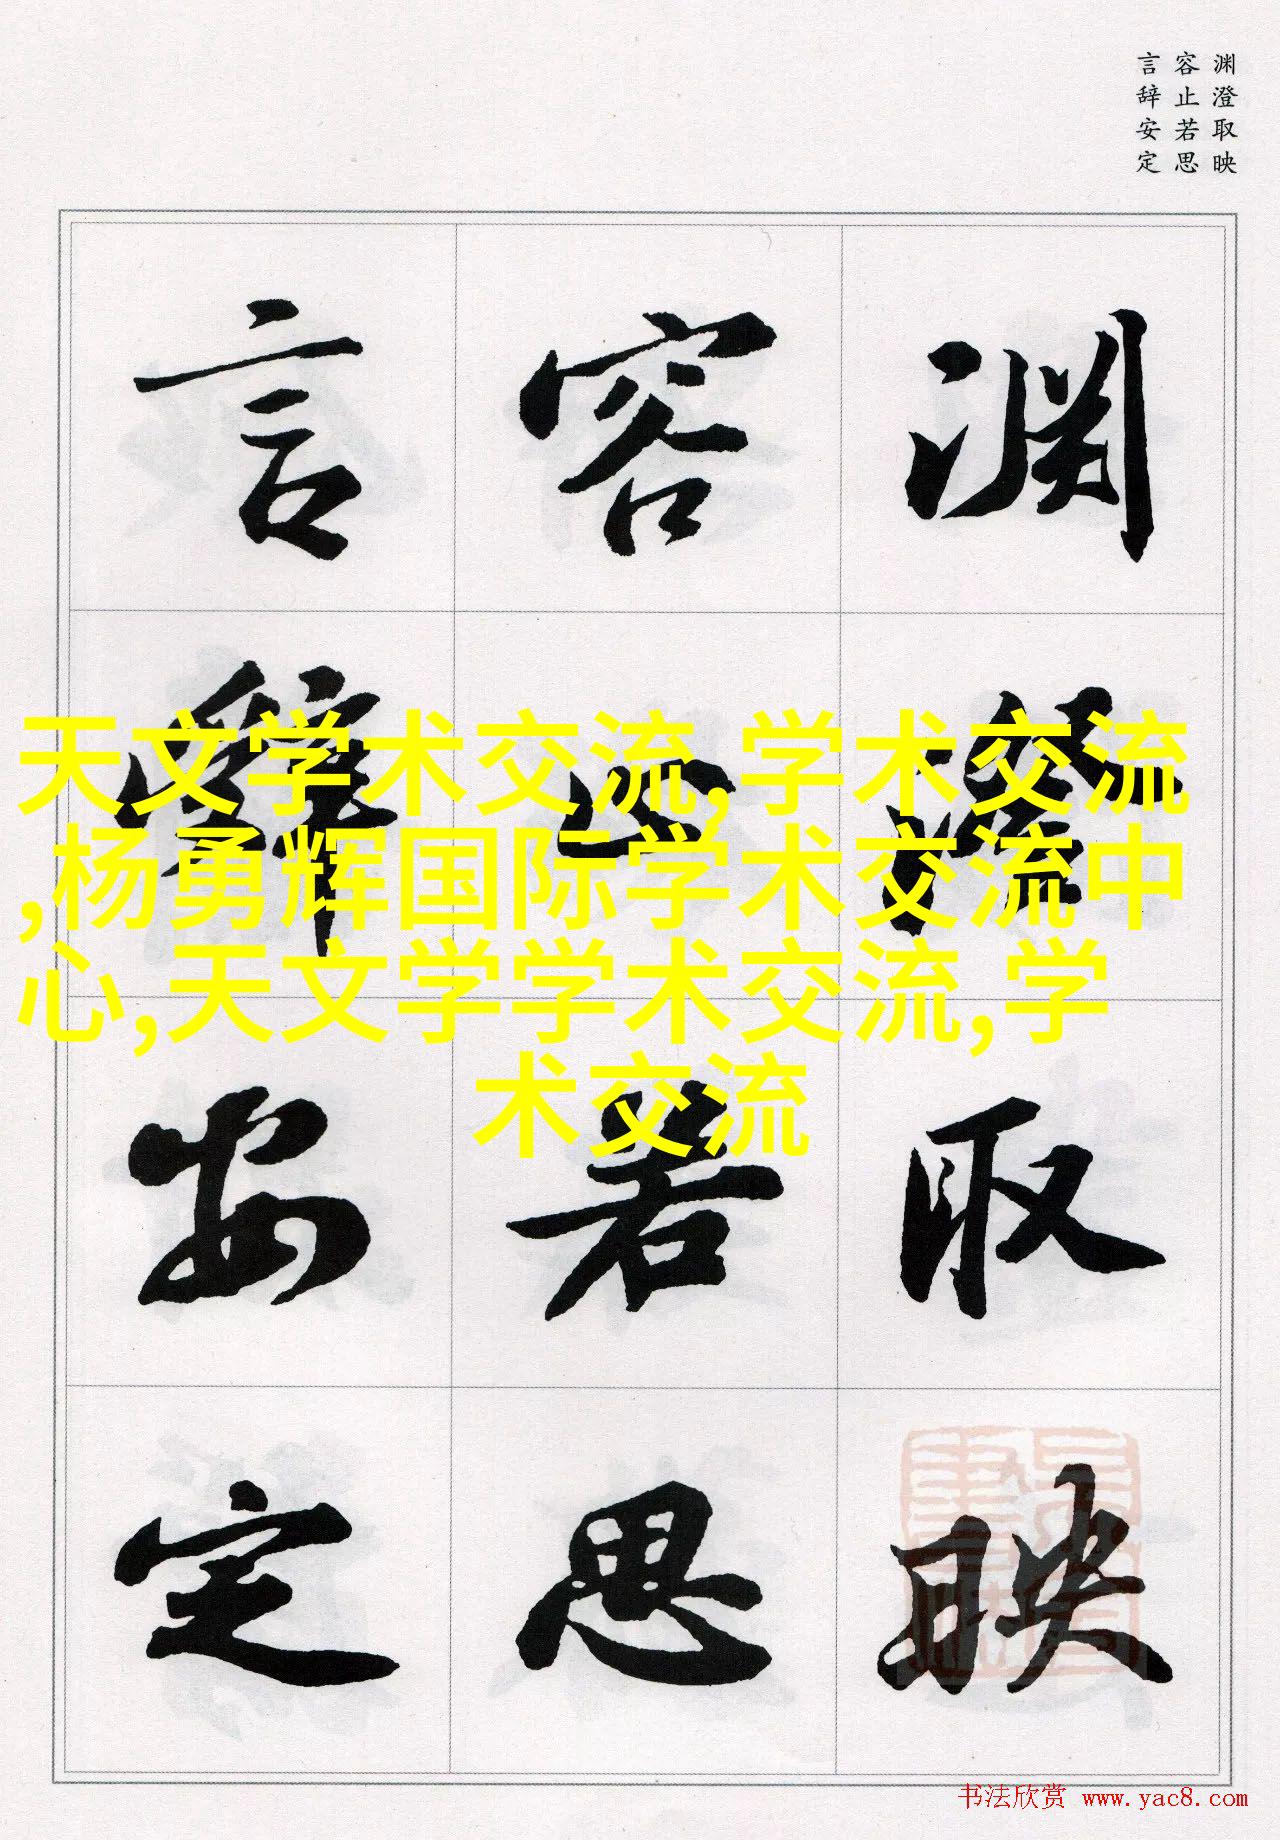 渊澄取映
容止若思
言辞安定
渊澄取映
容止若思
言辞安定
天文学术交流,学术交流
,杨勇辉国际学术交流中
心,天文学学术交流,学
术交流
书法欣赏 www.yac8.com